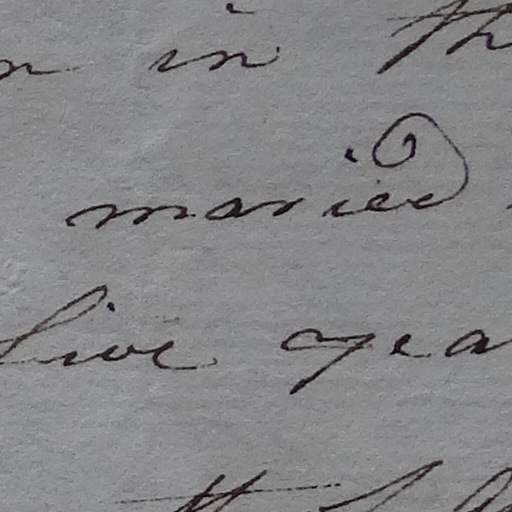 in th
maried
five yea